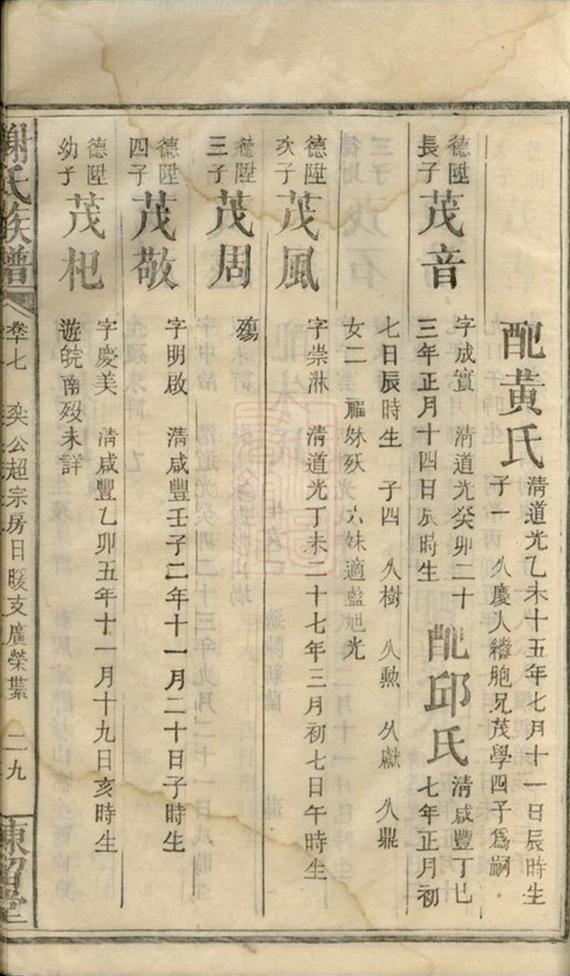 配黃氏
清道光乙未十五年七月十一日辰時生
子一 久慶入繼胞兄茂學四子爲嗣
德陞
長子
茂音
字成實 清道光癸卯二十
三年正月十四日辰時生
配邱氏
清咸豐丁巳
七年正月初
七日辰時生 子四 久樹 久勲 久獻 久鼎
女二 妹殀 六妹適藍旭光
德陞
次子
茂風
字崇淋 清道光丁未二十七年三月初七日午時生
德陞
三子
茂周
殤
德陞
四子
茂敬
字明啟 清咸豐壬子二年十一月二十日子時生
德陞
幼子
茂杞
字慶美 清咸豐乙卯五年十一月十九日亥時生
遊皖南歿未詳
謝氏族譜
卷十七
奕公超宗房日暖支廣榮業
二九
東留堂